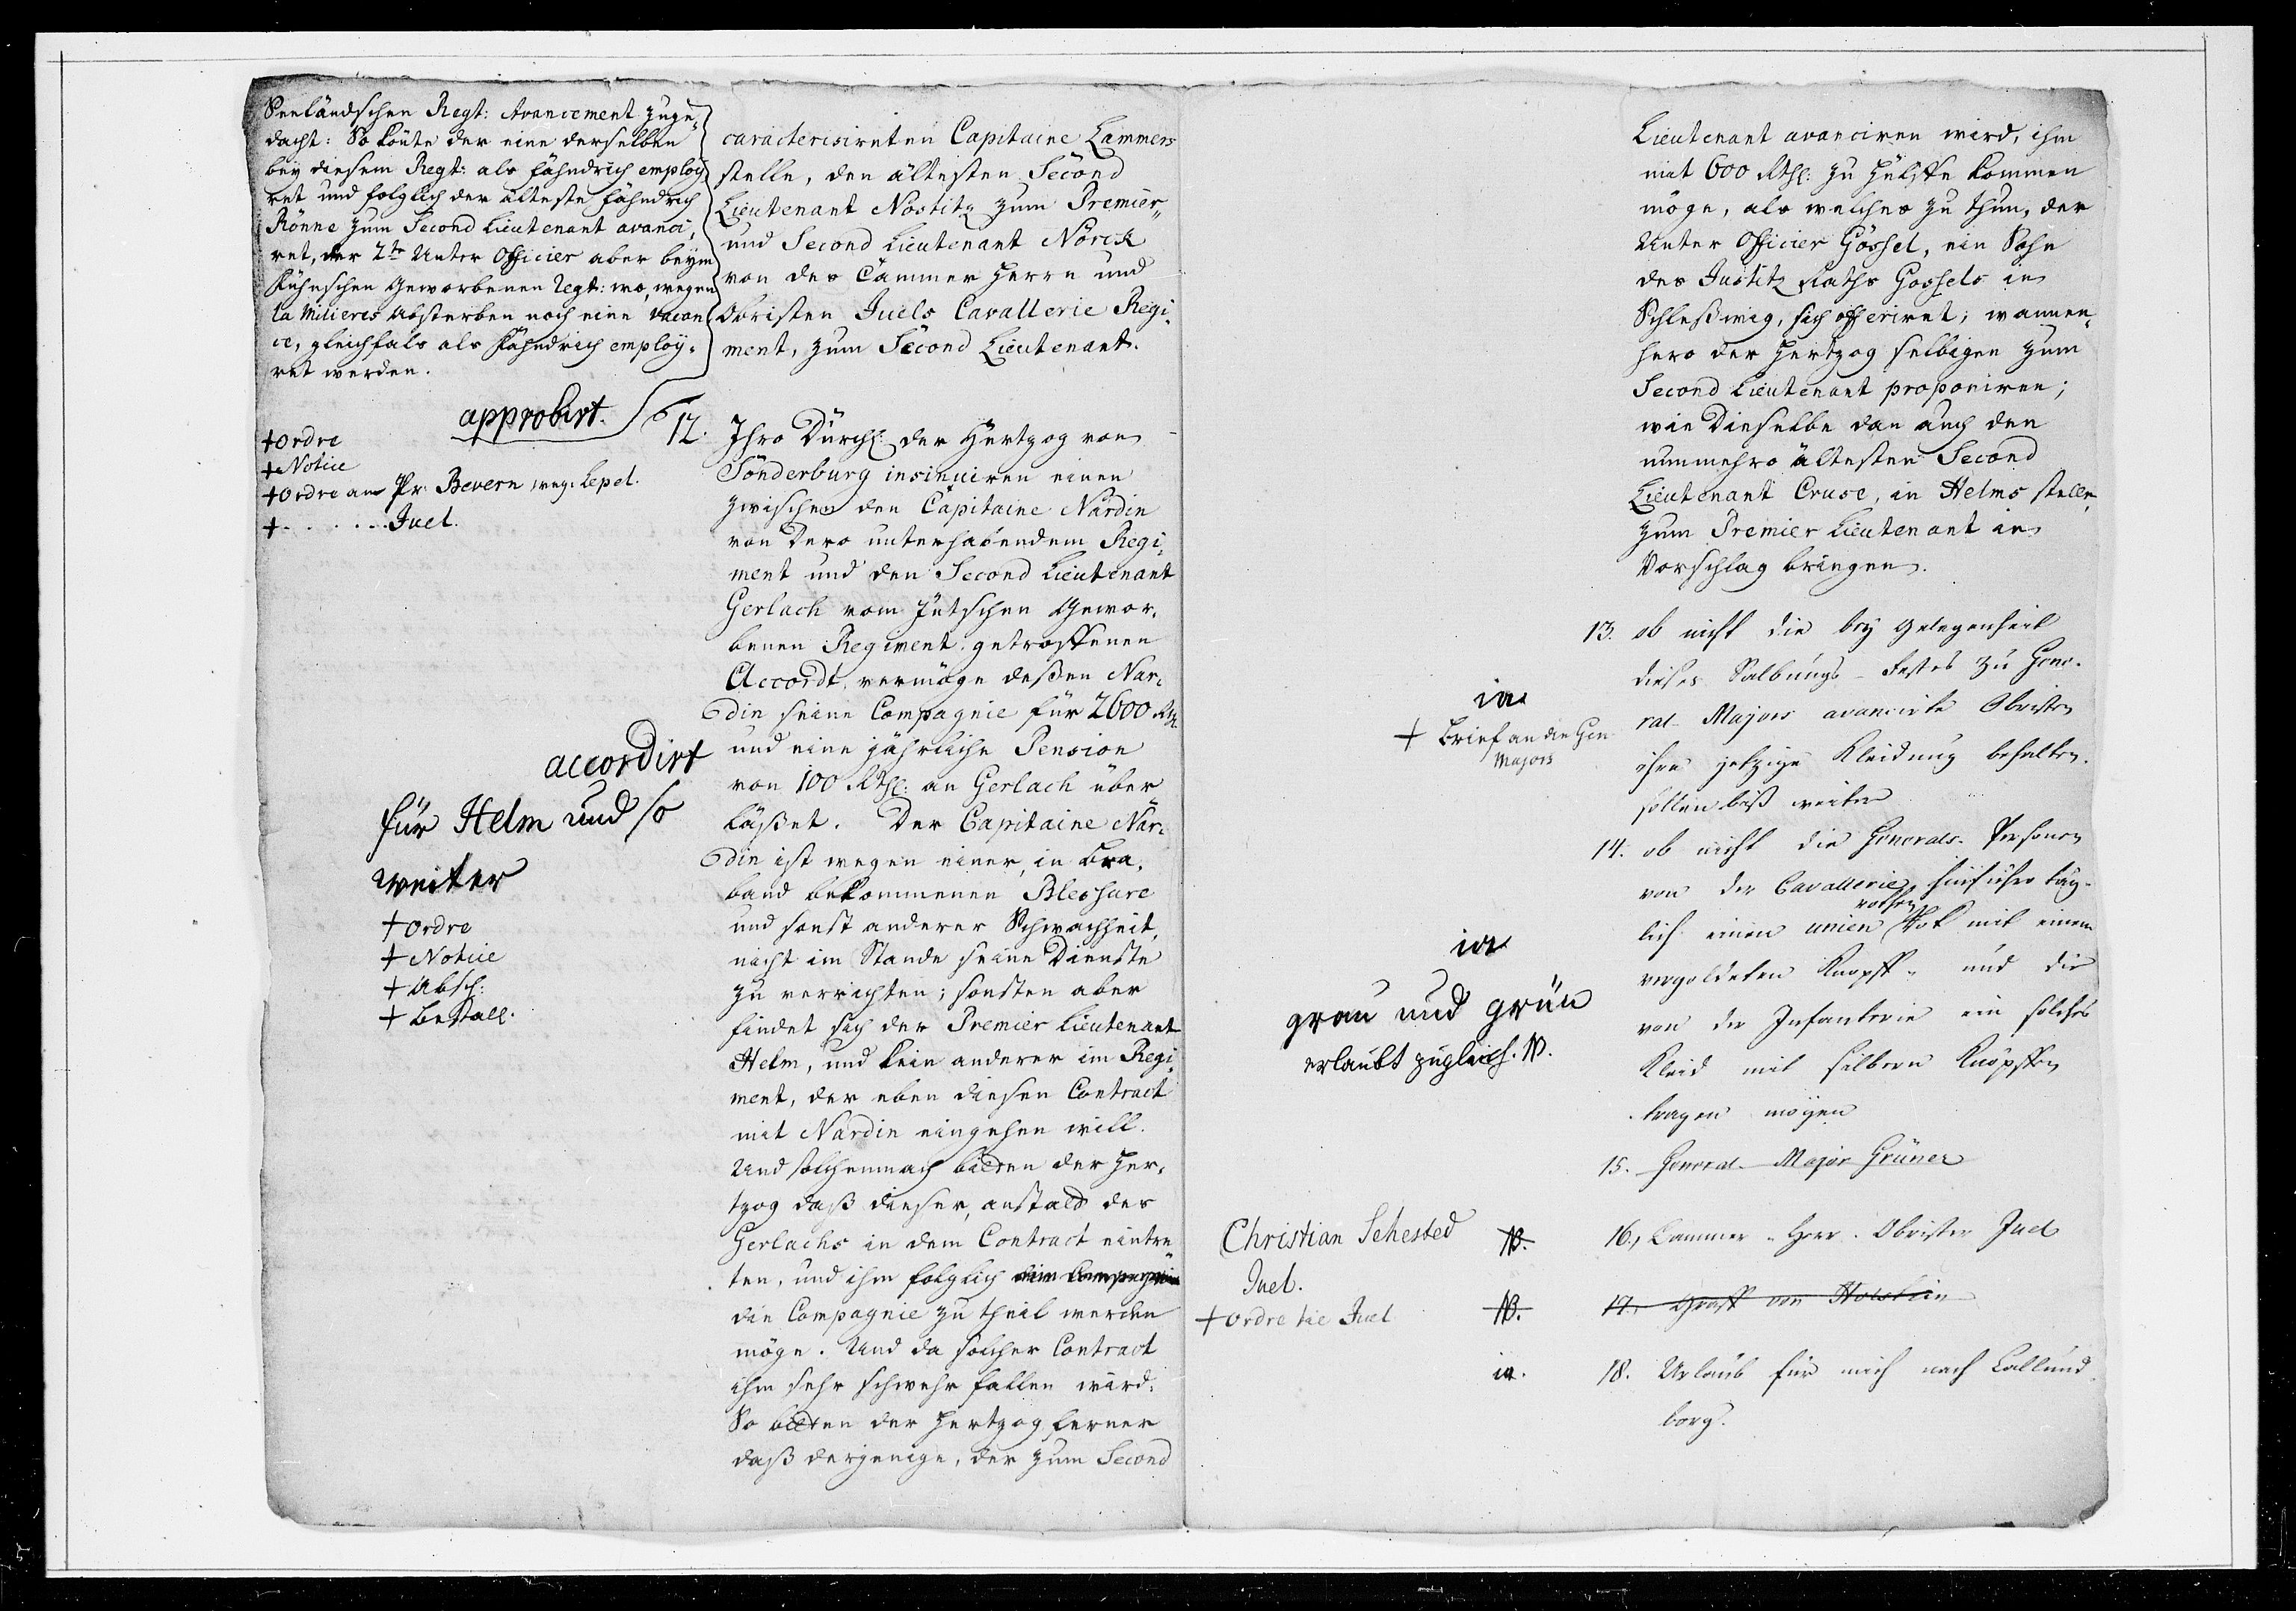 Seeländschen Regt: Avancement zuge¬
dacht: So könte der eine derselben
bey diesem Regt: als Fähndrich employ¬
ret und folglich der älteste Fähndrich
Rönne zum Second Lieutenant avanci¬
ret, der 2te Unter Officier aber beym
Fühnschen Geworbenen Regt: wo, wegen
la Milieres Absterben noch eine vacan
ce, gleichfals als Fähndrich employ¬
ret werden.
approbirt.
+ Ordre
+ Notice
+ Ordre an Pr. Bevern weg. Lepel.
+ . . . . . . Juel.
accordirt
für Helm und so
weiter
+ Ordre
+ Notice
+ Absch:
+ Bestall.
caracterisireten Capitaine Lammers
stelle, den ältesten Second
Lieutenant Nostitz zum Premier¬
und Second Lieutenant Nörck
von des Cammer Herrn und
Obristen Juels Cavallerie Regi¬
ment, zum Second Lieutenant.
12. Ihro Durchl: der Hertzog von
Sönderburg insinuiren einen
zwischen den Capitaine Nardin
von Dero unterhabendem Regi¬
ment und den Second Lieutenant
Gerlach vom Jütschen Gewor¬
benen Regiment getroffenen
Accordt, vermöge deßen Nar¬
din seine Compagnie für 2600 Rthl
und eine jährliche Pension
von 100 Rthl: an Gerlach über
läßet. Der Capitaine Nar¬
din ist wegen einer, in Bra¬
band bekommenen Blessure
und sonst anderer Schwachheit,
nicht im Stande seine Dienste
zu verrichten; sonsten aber
findet sich der Premier Lieutenant
Helm, und kein anderer im Regi¬
ment, der eben diesen Contract
mit Nardin eingehen will.
Und solchemnach bitten der Her¬
tzog daß dieser, anstatt des
Gerlachs in dem Contract eintre
ten, und ihm folglich die Compagnie
die Compagnie zu theil werden
möge. Und da solcher Contract
ihm sehr schwehr fallen wird.
So bitten der Hertzog ferner
daß derjenige, der zum Second
Lieutenant avanciren wird, ihm
mit 600 Rthl: zu Hülffe kommen
möge, als welches zu thun, der
Unter Officier Gössel, ein Sohn
des Justitz Raths Gossels in
Schleßwig, sich offeriret; wannen¬
hero der Hertzog selbigen zum
Second Lieutenant proponiren;
wie Dieselbe dan auch den
nunmehro ältesten Second
Lieutenant Cruse, in Helms stelle,
zum Premier Lieutenant in
Vorschlag bringen.
13. ob nicht die bey Gelegenheit
dieses Salbungs-Festes zu Gene¬
ral Majors avancirte Obristen
ihre jetzige Kleidung behalten
sollen biß weiter
ia
+ Brief an die Gen
Majors
14. ob nicht die Generals-Personen
von der Cavallerie hinführo täg¬
lich einen unien rothen Rok mit einem
vergoldeten Knopff und die
von der Infanterie ein solches
Kleid mit silbern Knöpffen
tragen mögen
ia
grau und grün
erlaubt zugleich. NB.
15. General-Major Grüner
Christian Sehested
Juel.
NB. 16., Cammer-Herr. Obrister Juel
+ Ordre tie Juel
NB. 17., Graff von Holstein
ia. 18. Urlaub für mich nach Callund
borg.